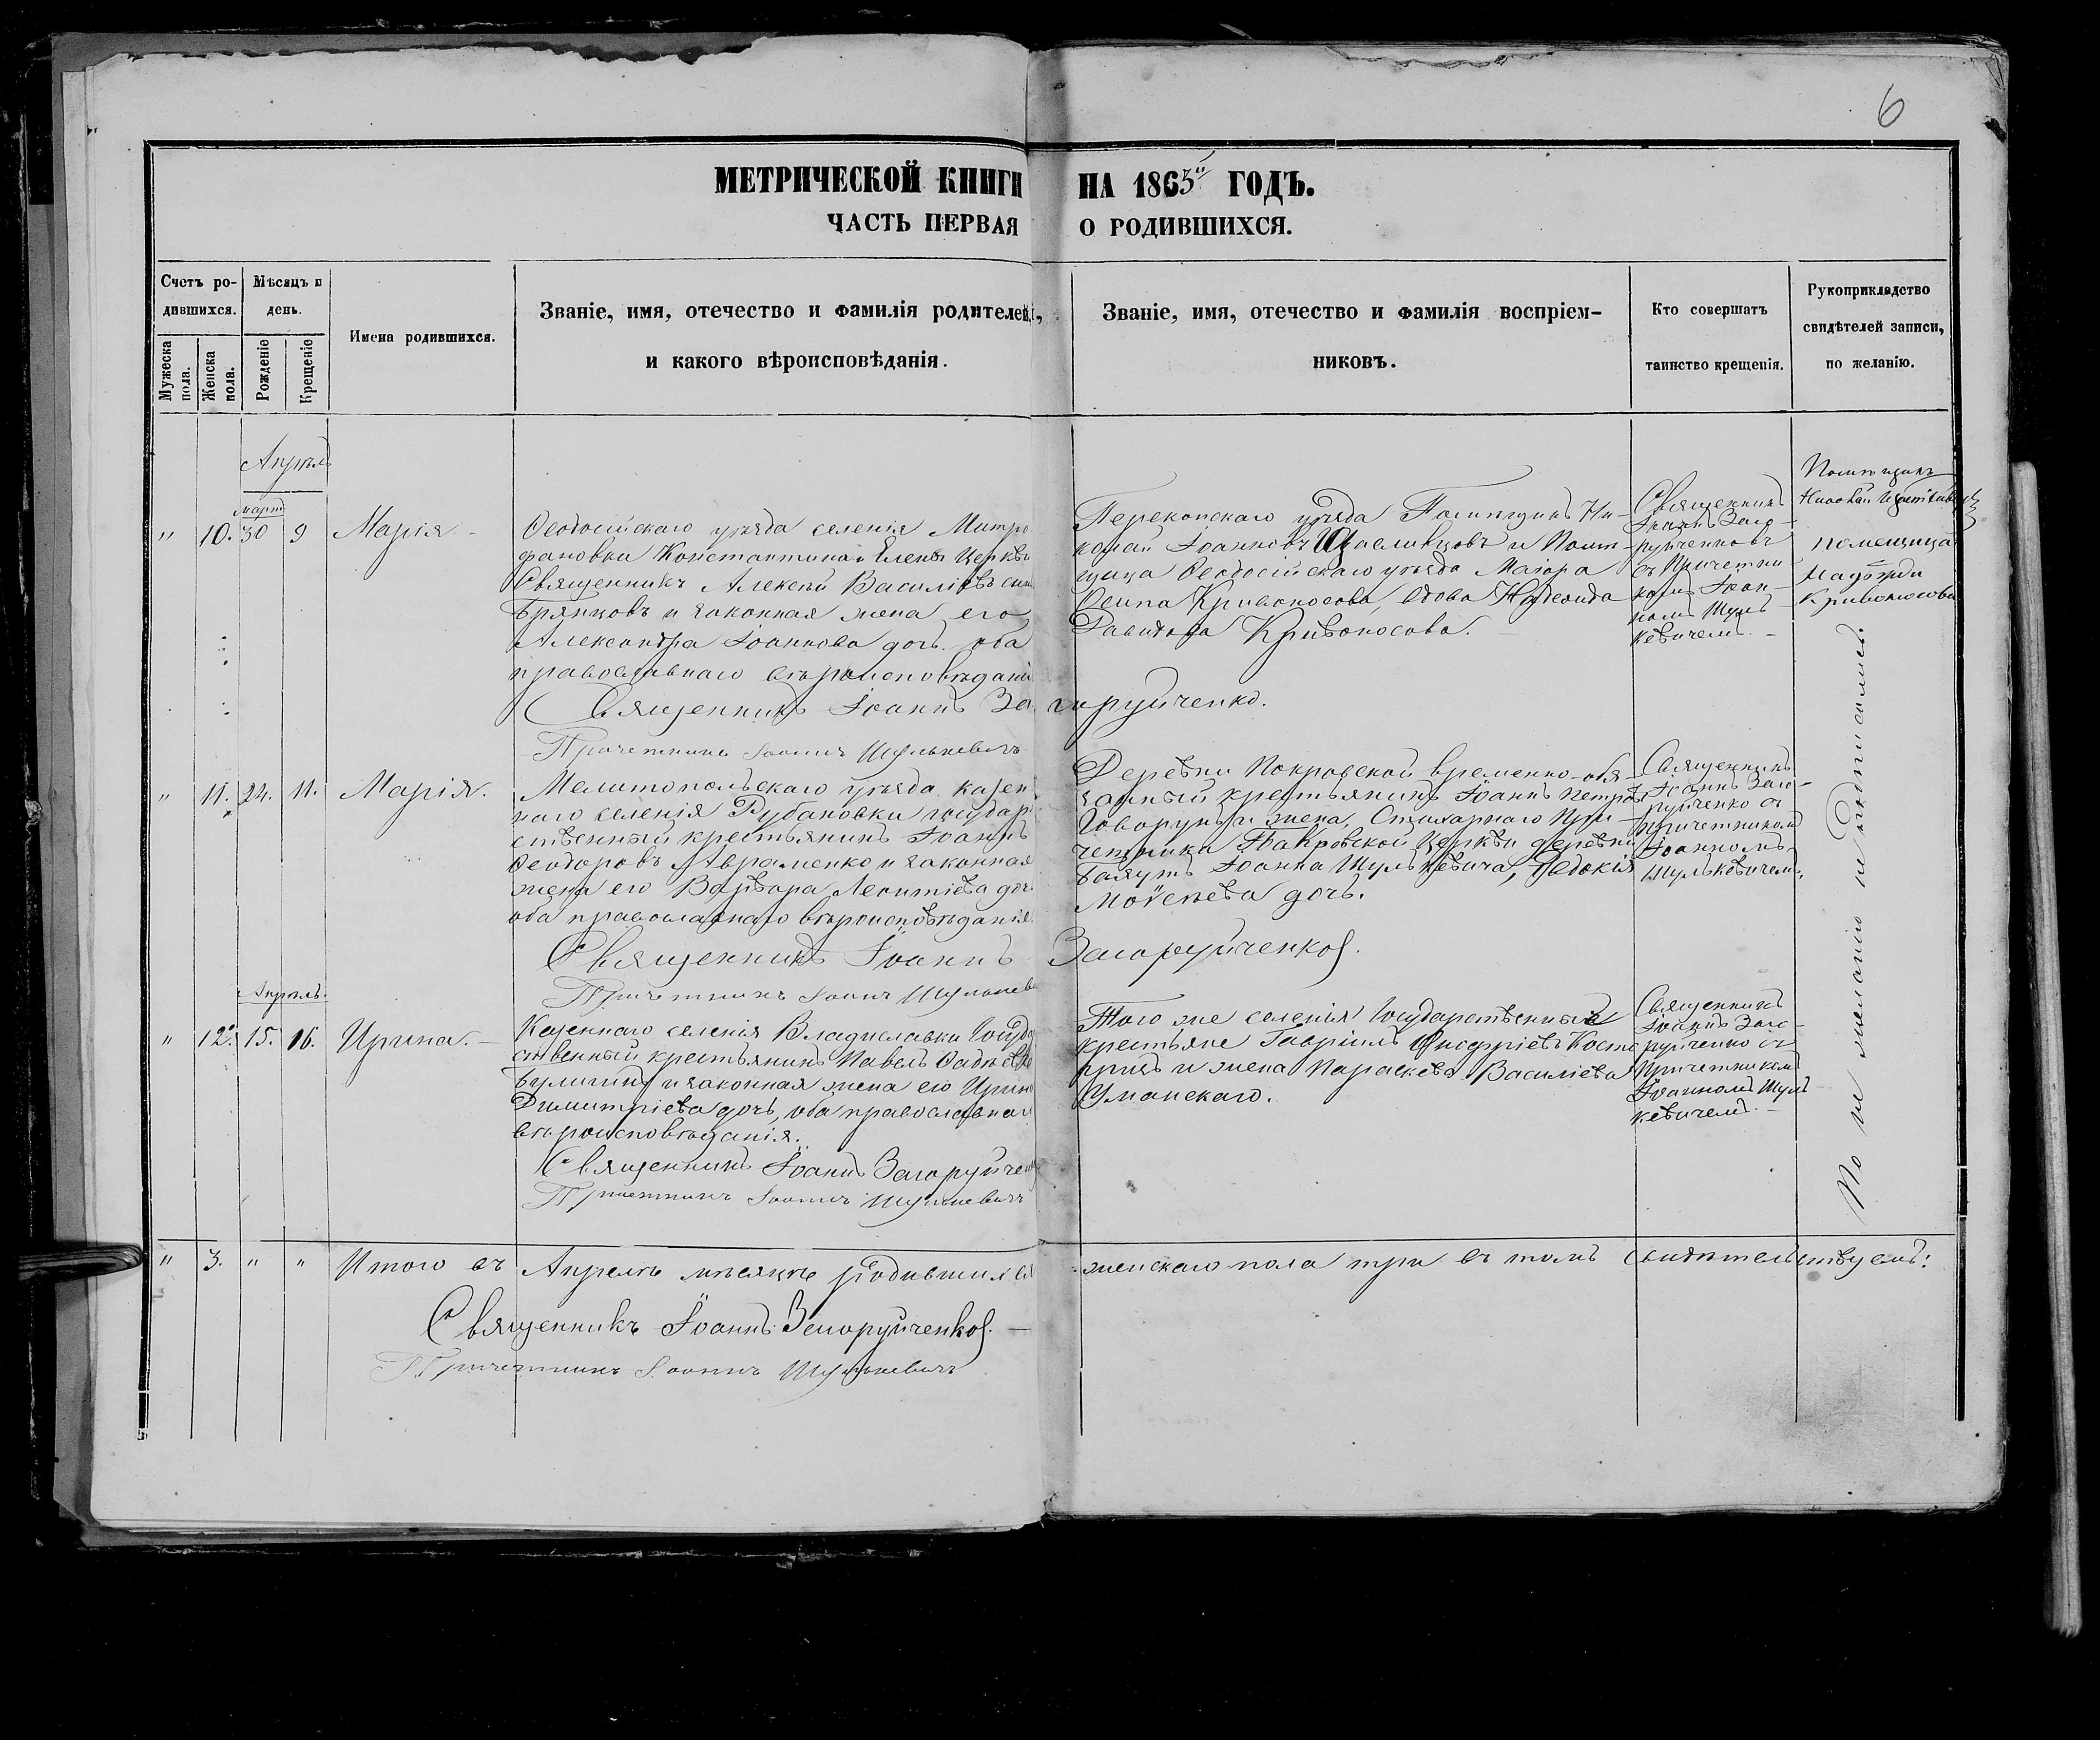 6
МЕТРИЧЕСКОЙ КНИГИ НА 1865й ГОДЪ.
ЧАСТЬ ПЕРВАЯ О РОДИВШИХСЯ.
Счетъ ро-
дившихся.
Мужеска
пола.
Женска
пола.
Мѣсяцъ и
день.
Рожденіе
Крещеніе
Имена родившихся.
Званіе, имя, отечество и фамилія родителей,
и какого вѣроисповѣданія.
Званіе, имя, отечество и фамилія воспріем-
никовъ.
Кто совершатъ
таинство крещенія.
Рукоприкладство
свидѣтелей записи,
по желанію.
Апрѣль
Мартъ
" 10. 30 9 Марія -
Ѳеодосійскаго уѣзда селенія Митро
фановки Константино Елены церкви
Священникъ Алексѣй Василіевъ сынъ
Брянцовъ и законная жена его
Александра Іоаннова дочь оба
православнаго вѣроисповѣданія
Священникъ Іоаннъ Загоруйченко.
Причетникъ Іоаннъ Шулькевичъ
Перекопскаго уѣзда Помѣщикъ Ни-
колай Іоанновъ Щасливцовъ и Помѣ-
щица Ѳеодосійскаго уѣзда Маіора
Осипа Кривоносова, вдова Надежда
Давидова Кривоносова.
Священникъ
Іоаннъ Заго-
руйченковъ
съ Причетни
комъ Іоан-
номъ Шуль
кевичемъ. -
Помѣщикъ
Николай Щасливцовъ
помещица
Надѣжда
Кривоносова
" 11. 24. 11. Марія.
Мелитопольскаго уѣзда казен
наго селенія Рубановки государ
ственный крестьянинъ Іоаннъ
Ѳеодоровъ Авраменко и законная
жена его Варвара Леонтіева дочь
оба православнаго вѣроисповѣданія.
Священникъ Іоаннъ Загоруйченко.
Причетникъ Іоаннъ Шулькеви
Деревни Покровской временно-обя-
занный крестьянинъ Іоаннъ Петровъ
Говорунъ и жена, Стихарнаго При-
четника Покровской Церкви деревни
Іоанна Шулькевича, Евдокія
Моѵсеева дочь.
Священникъ
Іоаннъ Заго-
руйченко съ
причетникомъ
Іоанномъ
Шулькевичемъ.
По не желанію не подписались.
Апрѣль.
" 12. 15. 16. Ирина. -
Казеннаго селенія Владиславки Государ
ственный крестьянинъ Павелъ Ѳадѣевъ
Булигинъ и законная жена его Ирина
Димитріева дочь, оба православнаго
вѣроисповѣданія.
Священникъ Іоаннъ Загоруйчен
Причетникъ Іоаннъ Шулькевичъ
Того же селенія Государственные
крестьяне Гавріилъ Онофріевъ Косто
и жена Параскева Василіева
Уманскаго.
Священникъ
Іоаннъ Заго-
руйченко съ
Причетникомъ
Іоанномъ Шуль
кевичемъ. -
" 3. " " Итого въ Апрелѣ мѣсяцѣ родившихся женскаго пола три въ томъ свидѣтельствуемъ:
Священникъ Іоаннъ Загоруйченко. -
Причетникъ Іоаннъ Шулькевичъ